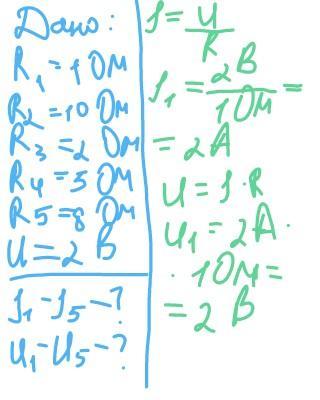 Дано:
R1 = 1 Ом
R2 = 10 Ом
R3 = 2 Ом
R4 = 5 Ом
R5 = 8 Ом
U = 2 В
J1 - J5 - ?
U1 - U5 - ?
J = U/R
J1 = 2 В/1 Ом =
= 2 А
U = J · R
U1 = 2 А ·
· 1 Ом =
= 2 В